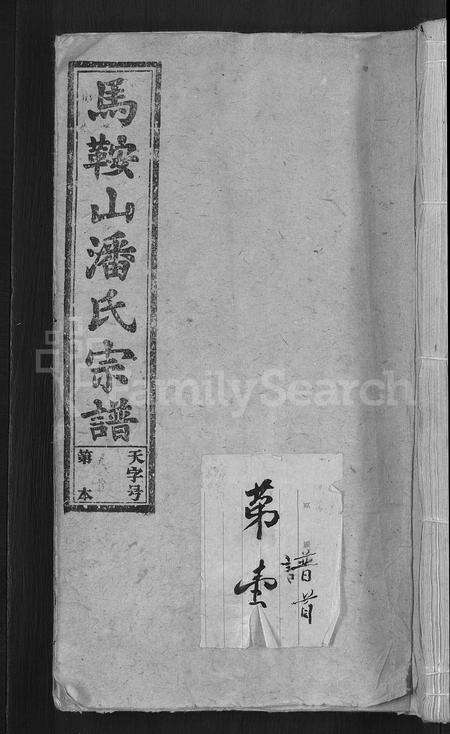 馬鞍山潘氏宗譜
天字号
第 本
第壹
譜首
FamilySearch